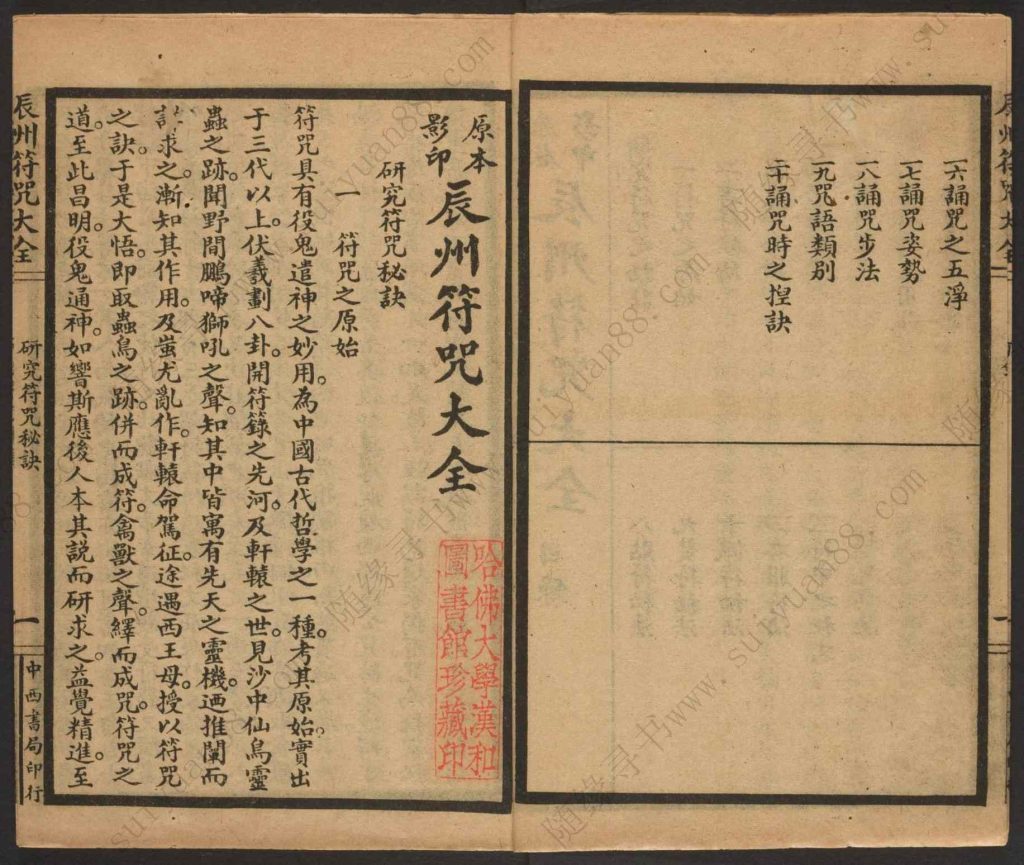 辰州符咒大全
一六誦咒之五淨
一七誦咒姿勢
一八誦咒步法
一九咒語類別
二十誦咒時之揑訣
原本
影印
辰州符咒大全
哈佛大學漢和
圖書館珍藏印
研究符咒秘訣
一　符咒之原始
符咒具有役鬼遣神之妙用。為中國古代哲學之一種。考其原始。實出
于三代以上。伏羲劃八卦。開符籙之先河。及軒轅之世。見沙中仙鳥靈
蟲之跡。聞野間鵬啼獅吼之聲。知其中皆寓有先天之靈機。迺推闡而
討求之。漸知其作用。及蚩尤亂作。軒轅命駕征。途遇西王母。授以符咒
之訣。于是大悟。即取蟲鳥之跡。併而成符。禽獸之聲。繹而成咒。符咒之
道。至此昌明。役鬼通神。如響斯應。後人本其說而研求之。益覺精進。至
辰州符咒大全
研究符咒秘訣
一
中西書局印行
随缘寻书www.suiyuan88.com